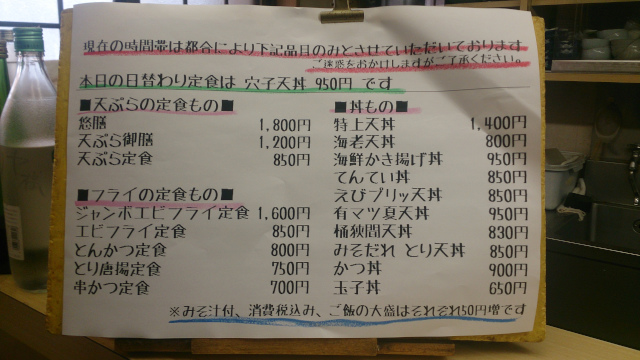 現在の時間帯は都合により下記品目のみとさせていただいております
ご迷惑をおかけしますがご了承ください。
本日の日替わり定食は 穴子天丼 950円 です
■天ぷらの定食もの■
悠膳 1,800円
天ぷら御膳 1,200円
天ぷら定食 850円
■フライの定食もの■
ジャンボエビフライ定食 1,600円
エビフライ定食 850円
とんかつ定食 800円
とり唐揚定食 750円
串かつ定食 700円
■丼もの■
特上天丼 1,400円
海老天丼 800円
海鮮かき揚げ丼 950円
てんてい丼 850円
えびプリッツ天丼 850円
有マツ夏天丼 950円
桶狭間天丼 830円
みそだれ とり天丼 850円
かつ丼 900円
玉子丼 650円
※みそ汁付、消費税込み、ご飯の大盛はそれぞれ50円増です